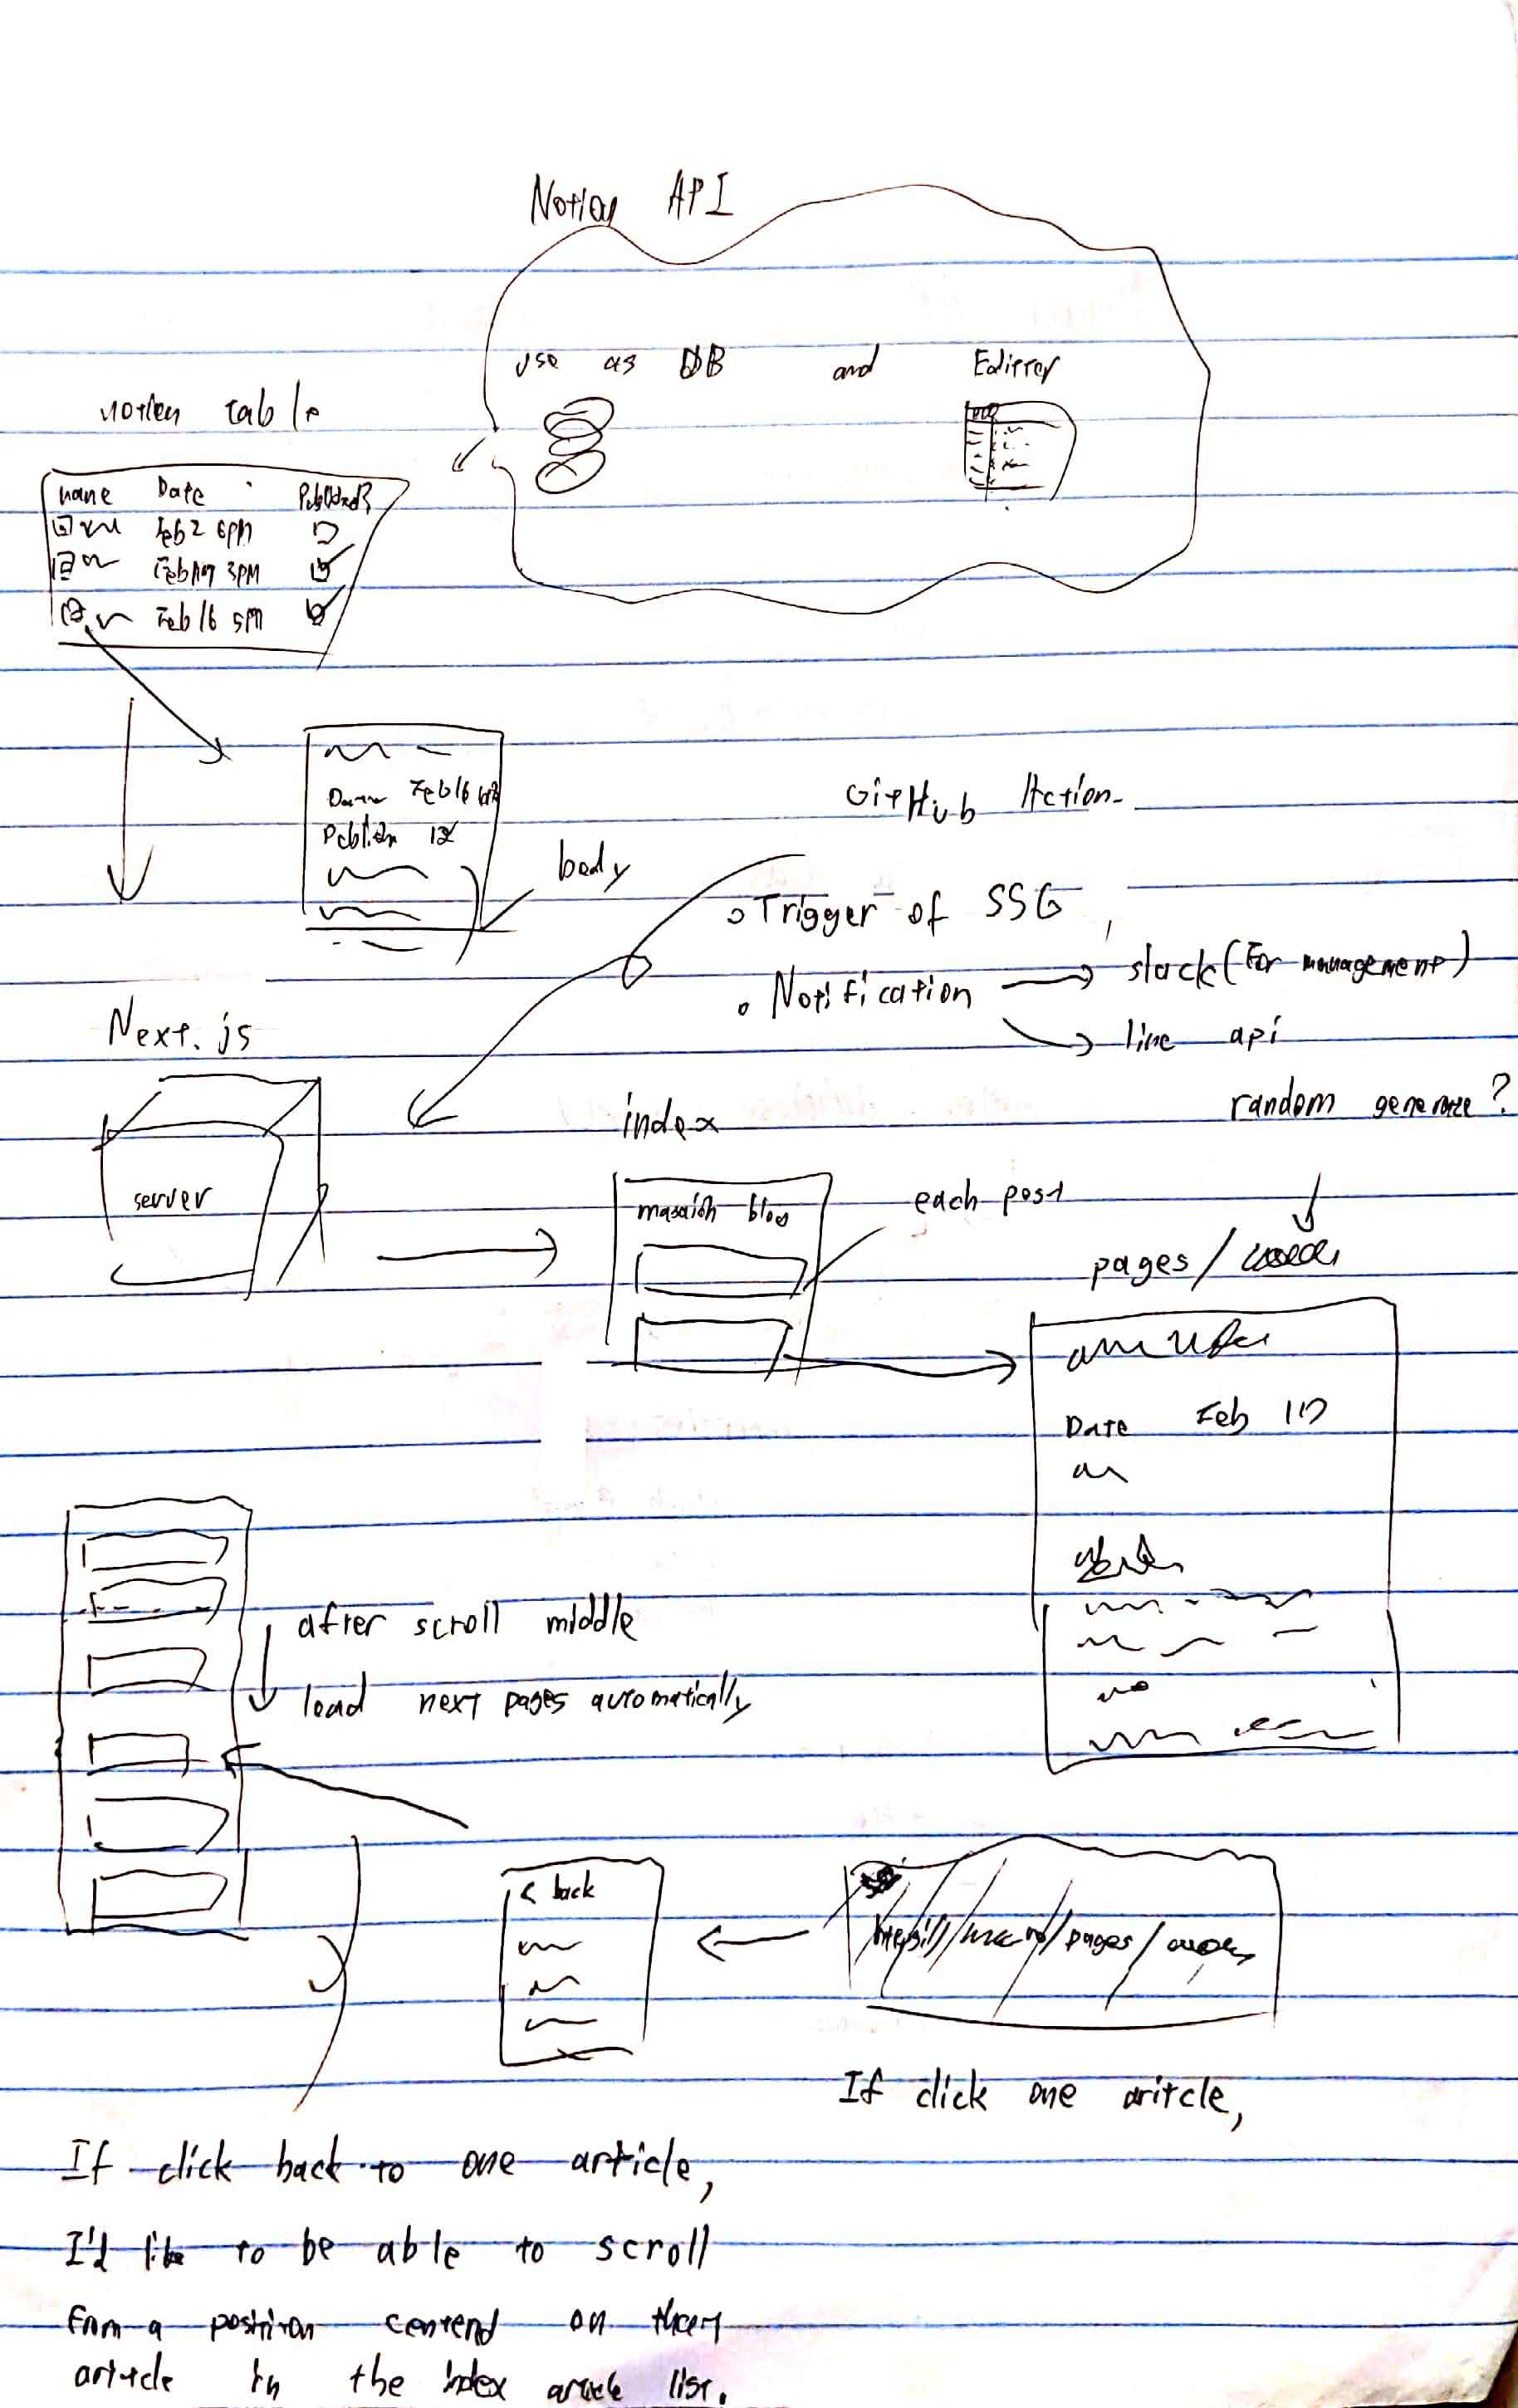 Notion API
use as DB and Editter
notion table
name Date Published?
Feb 2 6PM
Feb 17 3PM
Feb 16 5PM
Feb 16
Publish
body
GitHub Action
Trigger of SSG
Notification
slack (For management)
line api
Next.js
server
index
masaish blog
each post
random generate?
pages/
Date Feb 17
after scroll middle
load next pages automatically
< back
/pages/
If click one aritcle,
If click back to one article,
I'd like to be able to scroll
From a position centerd on
article in the index article list.